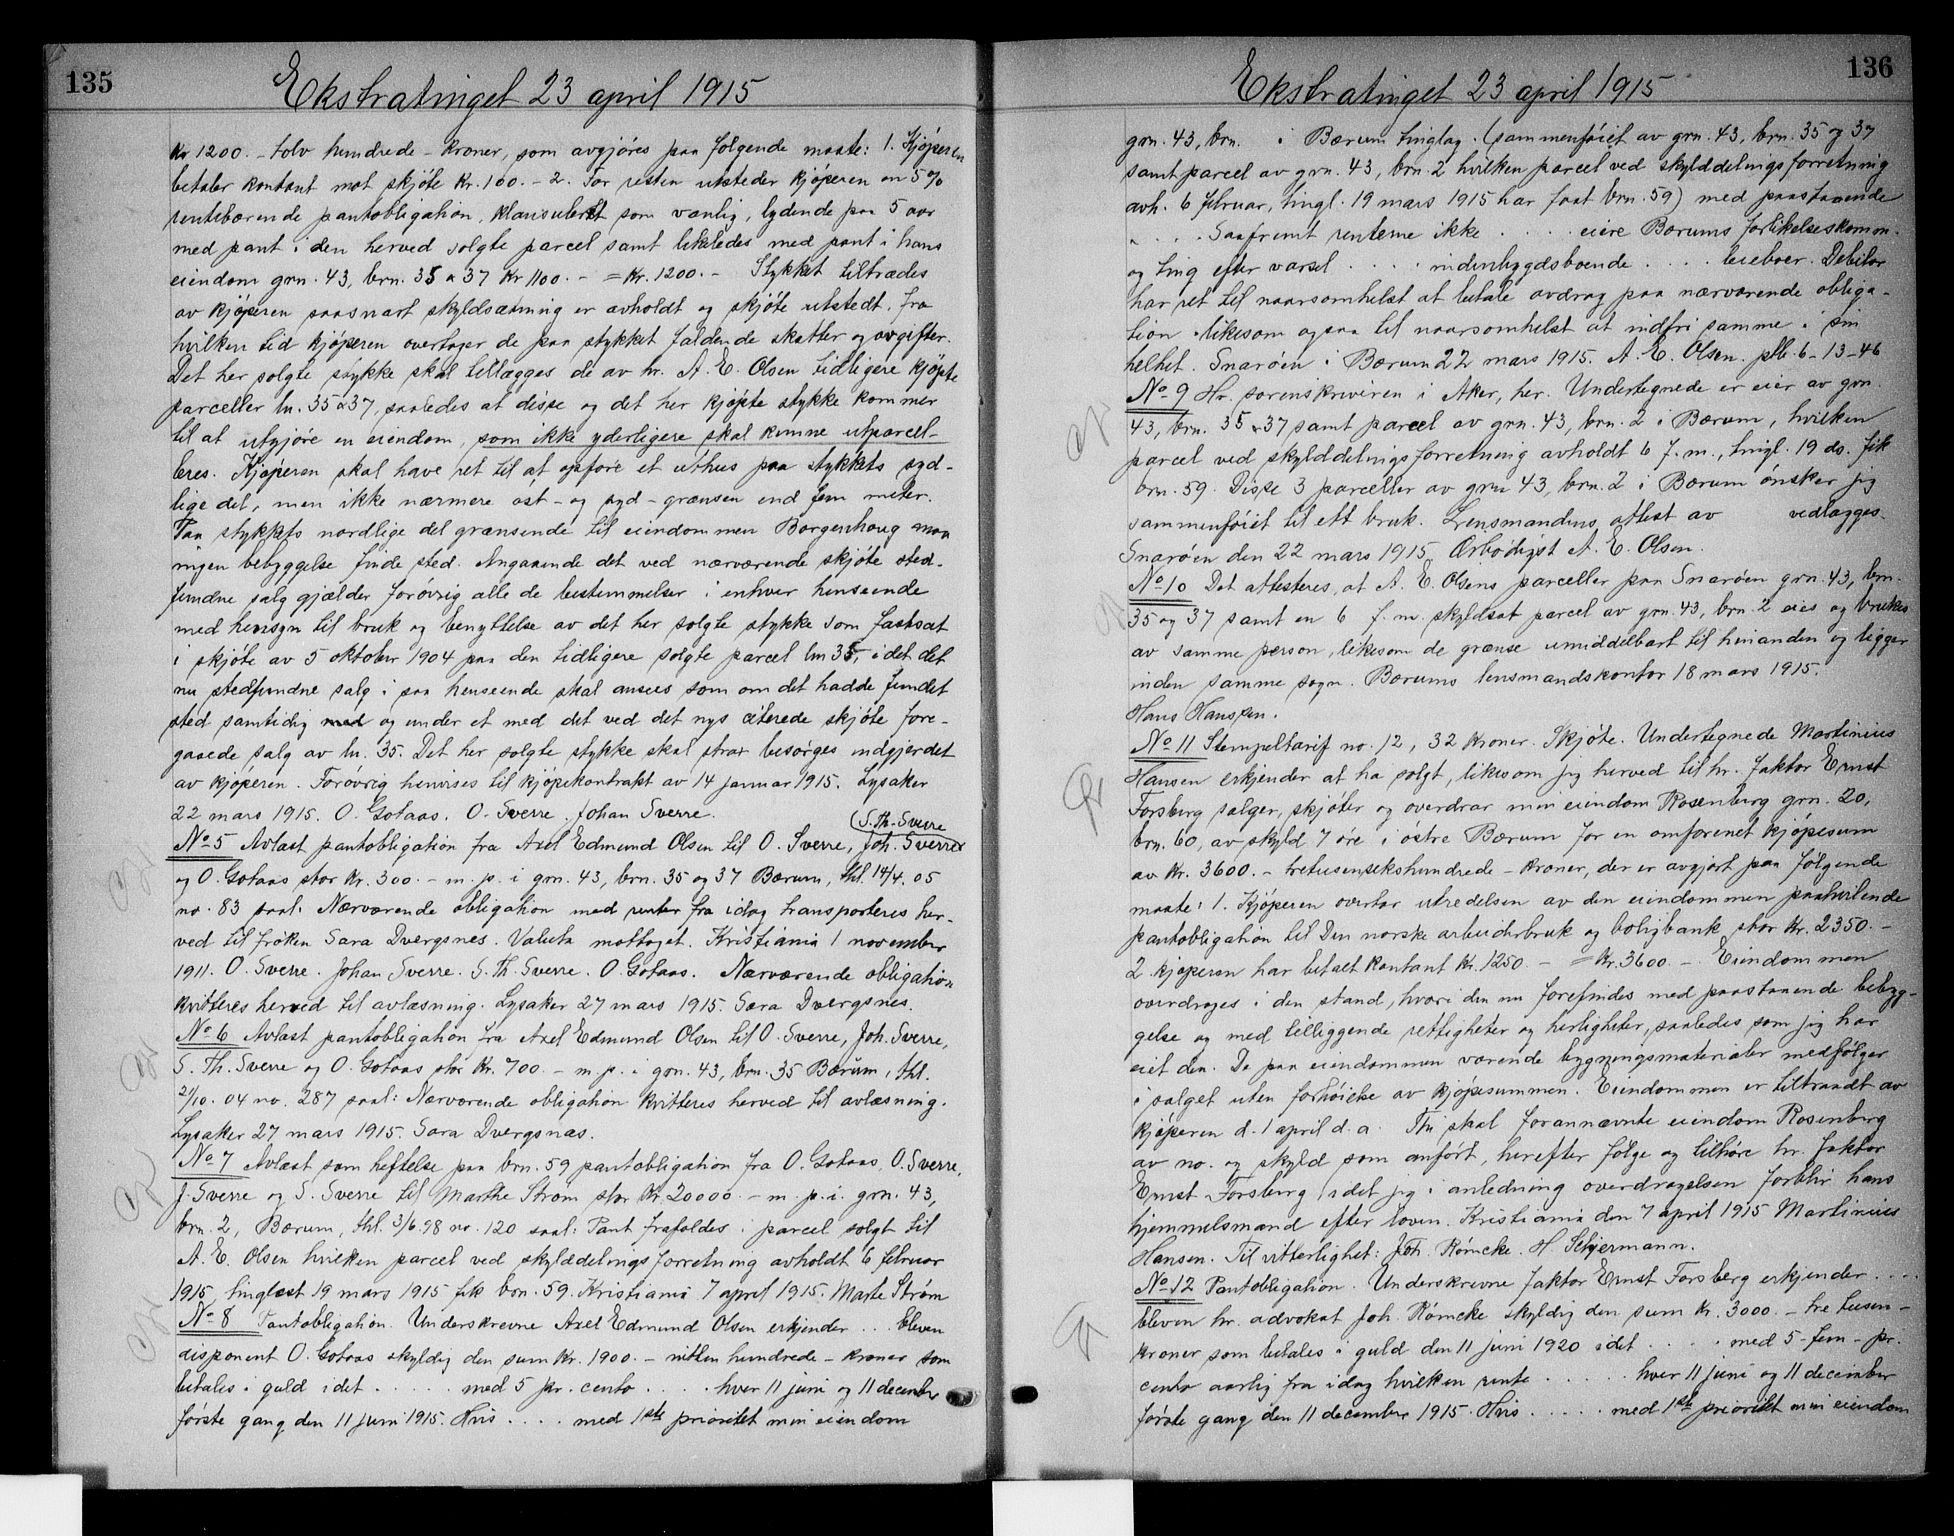 135
Ekstratinget 23 april 1915
Kr 1200.- tolv hundrede - kroner, som avgjøres paa følgende maate: 1. Kjøperen
betaler kontant mot skjøte Kr. 100.- 2. For resten utsteder kjøperen en 5%
rentebærende pantobligation, klausulert som vanlig, lydende paa 5 aar
med pant i den herved solgte parcel samt likeledes med pant i hans
eiendom grn. 43, brn. 35 & 37 Kr 1100.- = Kr. 1200.- Stykket tiltrædes
av kjøperen saasnart skyldsætning er avholdt og skjøte utstedt, fra
hvilken tid kjøperen overtager de paa stykket faldende skatter og avgifter.
Det her solgte stykke skal tillægges de av hr. A. E. Olsen tidligere kjøpte
parceller bn. 35 & 37, saaledes at disse og det her kjøpte stykke kommer
til at utgjøre en eiendom, som ikke yderligere skal kunne utparcel-
leres. Kjøperen skal have ret til at opføre et uthus paa stykkets syd-
lige del, men ikke nærmere øst- og syd-grænsen end fem meter.
Paa stykkets nordlige del grænsende til eiendommen Borgenhaug maa
ingen bebyggelse finde sted. Angaaende det ved nærværende skjøte sted-
fundne salg gjælder forøvrig alle de bestemmelser i enhver henseende
med hensyn til bruk og benyttelse av det her solgte stykke som fastsat
i skjøte av 5 oktober 1904 paa den tidligere solgte parcel bn 35, idet det
nu stedfundne salg i saa henseende skal ansees som om det hadde fundet
sted samtidig med og under et med det ved det nys citerede skjøte fore-
gaaede salg av bn. 35. Det her solgte stykke skal strax besørges indgjerdet
av kjøperen. Forøvrig henvises til kjøpekontrakt av 14 januar 1915. Lysaker
22 mars 1915. O. Gotaas. O. Sverre. Johan Sverre.
(S. Th. Sverre
No 5 Avlæst pantobligation fra Axel Edmund Olsen til O. Sverre, Joh. Sverre
og O. Gotaas stor Kr. 300.- m. p. i grn. 43, brn. 35 og 37 Bærum, thl. 14/4. 05
no. 83 saal: Nærværende obligation med renter fra idag transporteres her-
ved til frøken Sara Dvergsnes. Valuta mottaget. Kristiania 1 november
1911. O. Sverre. Johan Sverre. S. Th. Sverre. O. Gotaas. Nærværende obligation
kvitteres herved til avlæsning. Lysaker 27 mars 1915. Sara Dvergsnes.
No 6 Avlæst pantobligation fra Axel Edmund Olsen til O. Sverre, Joh. Sverre,
S. Th. Sverre og O. Gotaas stor Kr. 700.- m. p. i grn. 43, brn. 35 Bærum, thl.
21/10. 04 no. 287 saal: Nærværende obligation kvitteres herved til avlæsning.
Lysaker 27 mars 1915. Sara Dvergsnæs.
No 7 Avlæst som heftelse paa brn. 59 pantobligation fra O. Gotaas, O. Sverre,
J. Sverre og S. Sverre til Marthe Strøm stor Kr 20000.- m. p. i. grn. 43,
brn. 2, Bærum, thl. 3/6.98 no. 120 saal: Pant frafaldes i parcel solgt til
A. E. Olsen hvilken parcel ved skylddelingsforretning avholdt 6 februar
1915, tinglæst 19 mars 1915 fik brn. 59. Kristiania 7 april 1915. Marte Strøm
No 8 Pantobligation. Underskrevne Axel Edmund Olsen erkjender ... bleven
disponent O. Gotaas skyldig den sum Kr. 1900.- nitten hundrede - kroner som
betales i guld idet ..... med 5 pr. cento .... hver 11 juni og 11 december
første gang den 11 juni 1915. Hvis .... med 1ste prioritet min eiendom
136
Ekstratinget 23 april 1915
grn. 43, brn. i Bærum tinglag. (sammenføiet av grn. 43, brn. 35 og 37
samt parcel av grn. 43, brn. 2 hvilken parcel ved skylddelingsforretning
avh. 6 februar, tingl. 19 mars 1915 har faat brn. 59) med paastaaende
.... Saafremt renterne ikke .... eiere Bærums forlikelseskomm.
og ting efter varsel .... indenbygdsboende .... leieboer. Debitor
har ret til naarsomhelst at betale avdrag paa nærværende obliga-
tion likesom ogsaa til naarsomhelst at indfri samme i sin
helhet. Snarøen i Bærum 22 mars 1915. A. E. Olsen. ptb. 6-13-46
No 9 Hr. sorenskriveren i Aker, her. Undertegnede er eier av grn.
43, brn. 35 & 37 samt parcel av grn. 43, brn. 2 i Bærum, hvilken
parcel ved skylddelingsforretning avholdt 6 f. m., tingl. 19 ds. fik
brn. 59. Disse 3 parceller av grn 43, brn. 2 i Bærum ønsker jeg
sammenføiet til ett bruk. Lensmandens attest av vedlægges.
Snarøen den 22 mars 1915. Ærbødigst A. E. Olsen.
No 10 Det attesteres, at A. E. Olsens parceller paa Snarøen grn. 43, brn.
35 og 37 samt en 6 f. m. skyldsat parcel av grn. 43, brn. 2 eies og brukes
av samme person, likesom de grænse umiddelbart til hinanden og ligger
inden samme sogn. Bærums lensmandskontor 18 mars 1915.
Hans Hanssen.
No 11 Stempeltarif no. 12, 32 kroner. Skjøte. Undertegnede Martinius
Hansen erkjender at ha solgt, likesom jeg herved til hr. faktor Ernst
Forsberg sælger, skjøter og overdrar min eiendom Rosenberg grn. 20,
brn. 60, av skyld 7 øre i østre Bærum for en omforenet kjøpesum
av Kr. 3600.- tretusensekshundrede - kroner, der er avgjort paa følgende
maate: 1. Kjøperen overtar utredelsen av den eiendommen paahvilende
pantobligation til Den norske arbeiderbruk og boligbank stor Kr. 2350.-
2. kjøperen har betalt kontant Kr. 1250.- = Kr. 3600.-. Eiendommen
overdrages i den stand, hvori den nu forefindes med paastaaende bebyg-
gelse og med tilliggende rettigheter og herligheter, saaledes som jeg har
eiet den. De paa eiendommen værende bygningsmaterialer medfølger
i salget uten forhøielse av kjøpesummen. Eiendommen er tiltraadt av
kjøperen d. 1 april d. a. Thi skal forannævnte eiendom Rosenberg
av no. og skyld som anført, herefter følge og tilhøre hr. faktor
Ernst Forsberg idet jeg i anledning overdragelsen forblir hans
hjemmelsmand efter loven. Kristiania den 7 april 1915 Martinius
Hansen. Til vitterlighet: Joh. Rømcke. H. Schjermann.
No 12 Pantobligation. Underskrevne faktor Ernst Forsberg erkjender ....
bleven hr. advokat Joh. Rømcke skyldig den sum Kr. 3000.- tre tusen-
kroner som betales i guld den 11 juni 1920 idet .... med 5 - fem - pr.
cento aarlig fra idag hvilken rente ..... hver 11 juni og 11 december
første gang den 11 december 1915. Hvis ..... med 1ste prioritet min eiendom